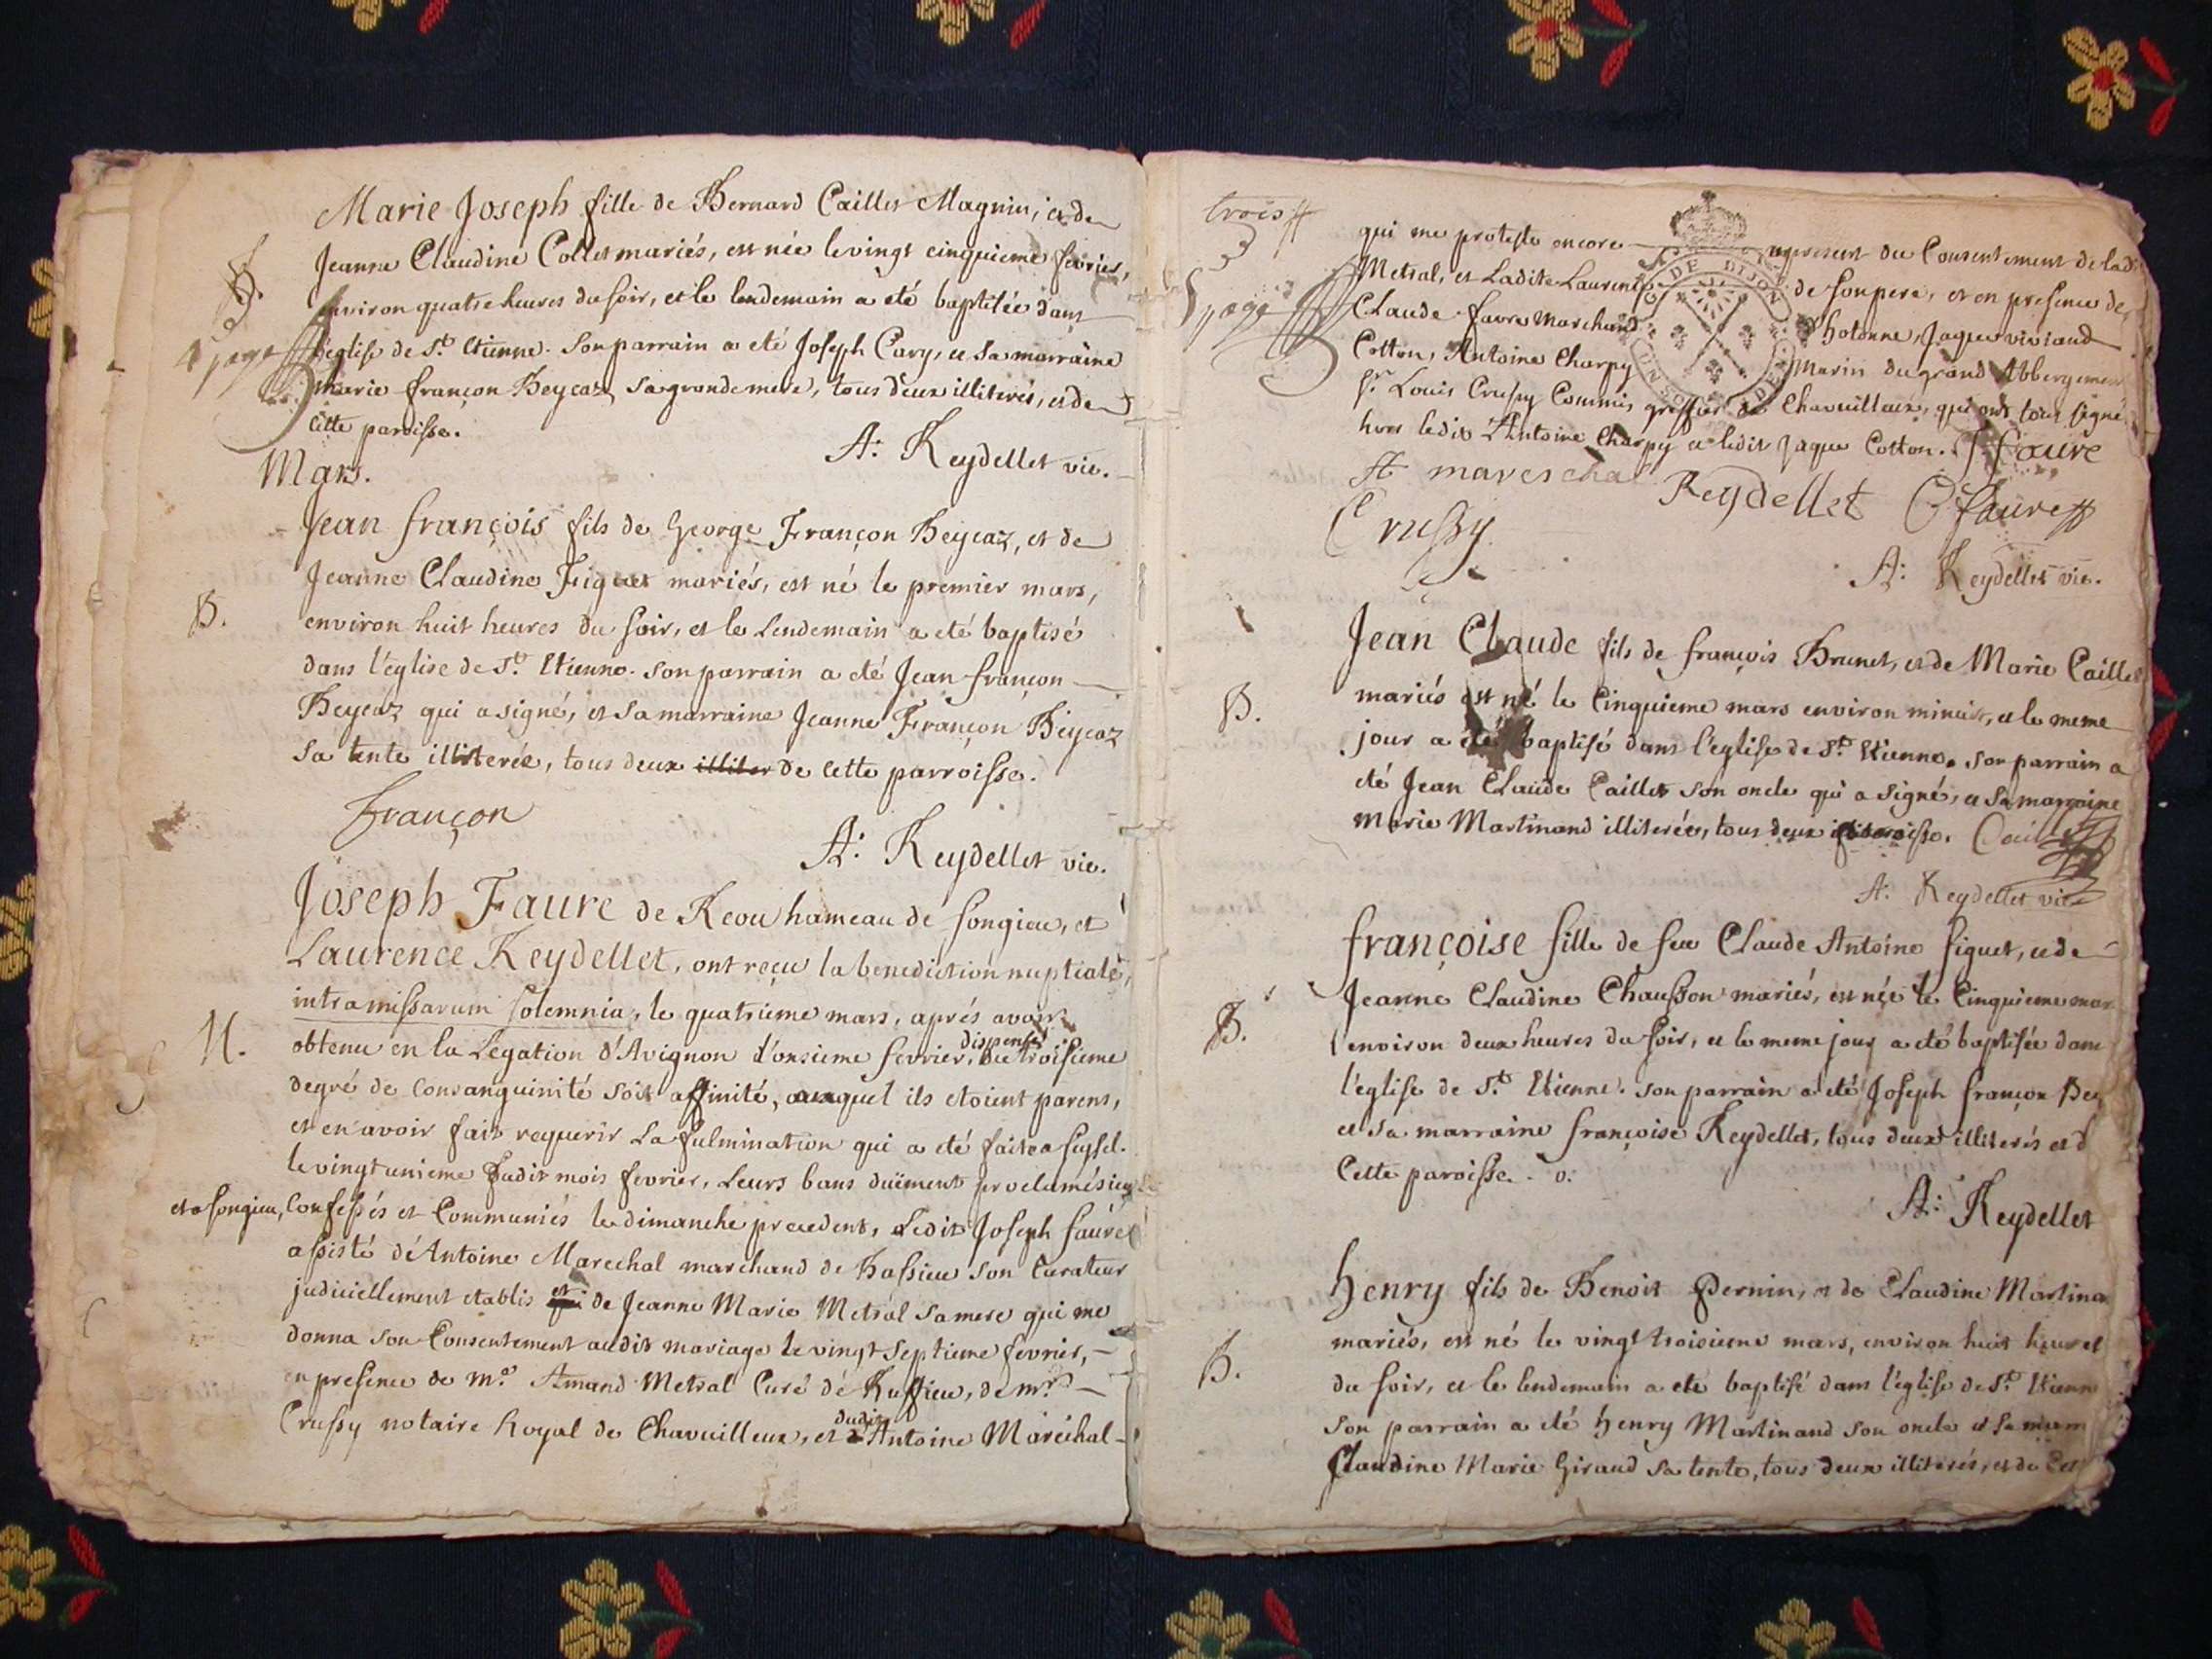 Marie Joseph fille de Bernard Caillet Magnin, et de
B. Jeanne Claudine Collet mariés, est née le vingt cinquieme fevrier,
environ quatre heures du soir, et le lendemain a été baptisée dans
4 page l'eglise de St. Etienne. son parrain a eté Joseph Cary, et sa marraine
marie françon Beycaz sa grande mere, tous deux illiterés, et de
cette paroisse.
A: Reydellet vic.
Mars.
Jean françois fils de George Françon Beycaz, et de
Jeanne Claudine Figuet mariés, est né le premier mars,
B. environ huit heures du soir, et le Lendemain a eté baptisé
dans l'église de St. Etienne. son parrain a eté Jean françon
Beycaz qui a signé, et sa marraine Jeanne Françon Beycaz
sa tente illiterée, tous deux illiter de cette parroisse.
françon
A: Reydellet vic.
Joseph Faure de Reou hameau de songieu, et
Laurence Reydellet, ont reçu la benediction nuptiale,
intra missarum solemnia, le quatrieme mars, aprés avoir
M. obtenu en la Légation d'Avignon l'onsieme fevrier, dispense du troisieme
degré de consanguinité soit affinité, auxquel ils etoient parens,
et en avoir fait requerir La fulmination qui a eté faite a seyssel
le vingt unieme sudit mois fevrier, Leurs bans duëment proclamés icy
et a songieu, Confessés et Communiés le dimanche precedent, Ledit Joseph faure
assisté d'Antoine Marechal marchand de Bassieu son Curateur
judiciellement etablis et de Jeanne Marie Metral sa mere qui me
donna son Consentement audit mariage le vingt septieme fevrier,
en presence de Mre. Amand Metral Curé de Ruffieu, de mr.
Crussy notaire Royal de Chavuilleux, et dudit Antoine Maréchal
trois
3
5 page
qui me proteste encore a present du Consentement de lad
Metral, et Ladite Laurence de son pere, et en presence de
Claude favre marchand hotonne, Jaque viviand
Cotton, Antoine Charpy Marin du grand Abbergement
sr. Louis Crussy Commis greffier de Chavuilleux, qui ont tous signé
hors ledit Antoine Charpy et ledit Jaque Cotton. J faure
A mareschal Reydellet C faure
Crussy
A: Reydellet vic.
DE DIJON
Jean Claude fils de françois Brunet, et de Marie Caillet
B. mariés est né le Cinquieme mars environ minuit, et le meme
jour a eté baptisé dans l'eglise de St. Etienne. son parrain a
eté Jean Claude Caillet son oncle qui a signé, et sa marraine
marie Martinand illiterée, tous deux
A: Reydellet vic
françoise fille de feu Claude Antoine figuet, et de
Jeanne Claudine Chausson mariés, est née le Cinquieme mar
B. environ deux heures du soir, et le meme jour a eté baptisée dans
l'église de St. Etienne. son parrain a eté Joseph françon Bey
et sa marraine françoise Reydellet, tous deux illiterés et d
Cette paroisse.
A: Reydellet
henry fils de Benoit Pernin, et de Claudine Martina
B. mariés, est né le vingt troisieme mars, environ huit heures
du soir, et le lendemain a eté baptisé dans l'église de St. Etienne
son parrain a eté henry Martinand son oncle et sa marr
Claudine Marie Giraud sa tente, tous deux illiterés, et de Cet